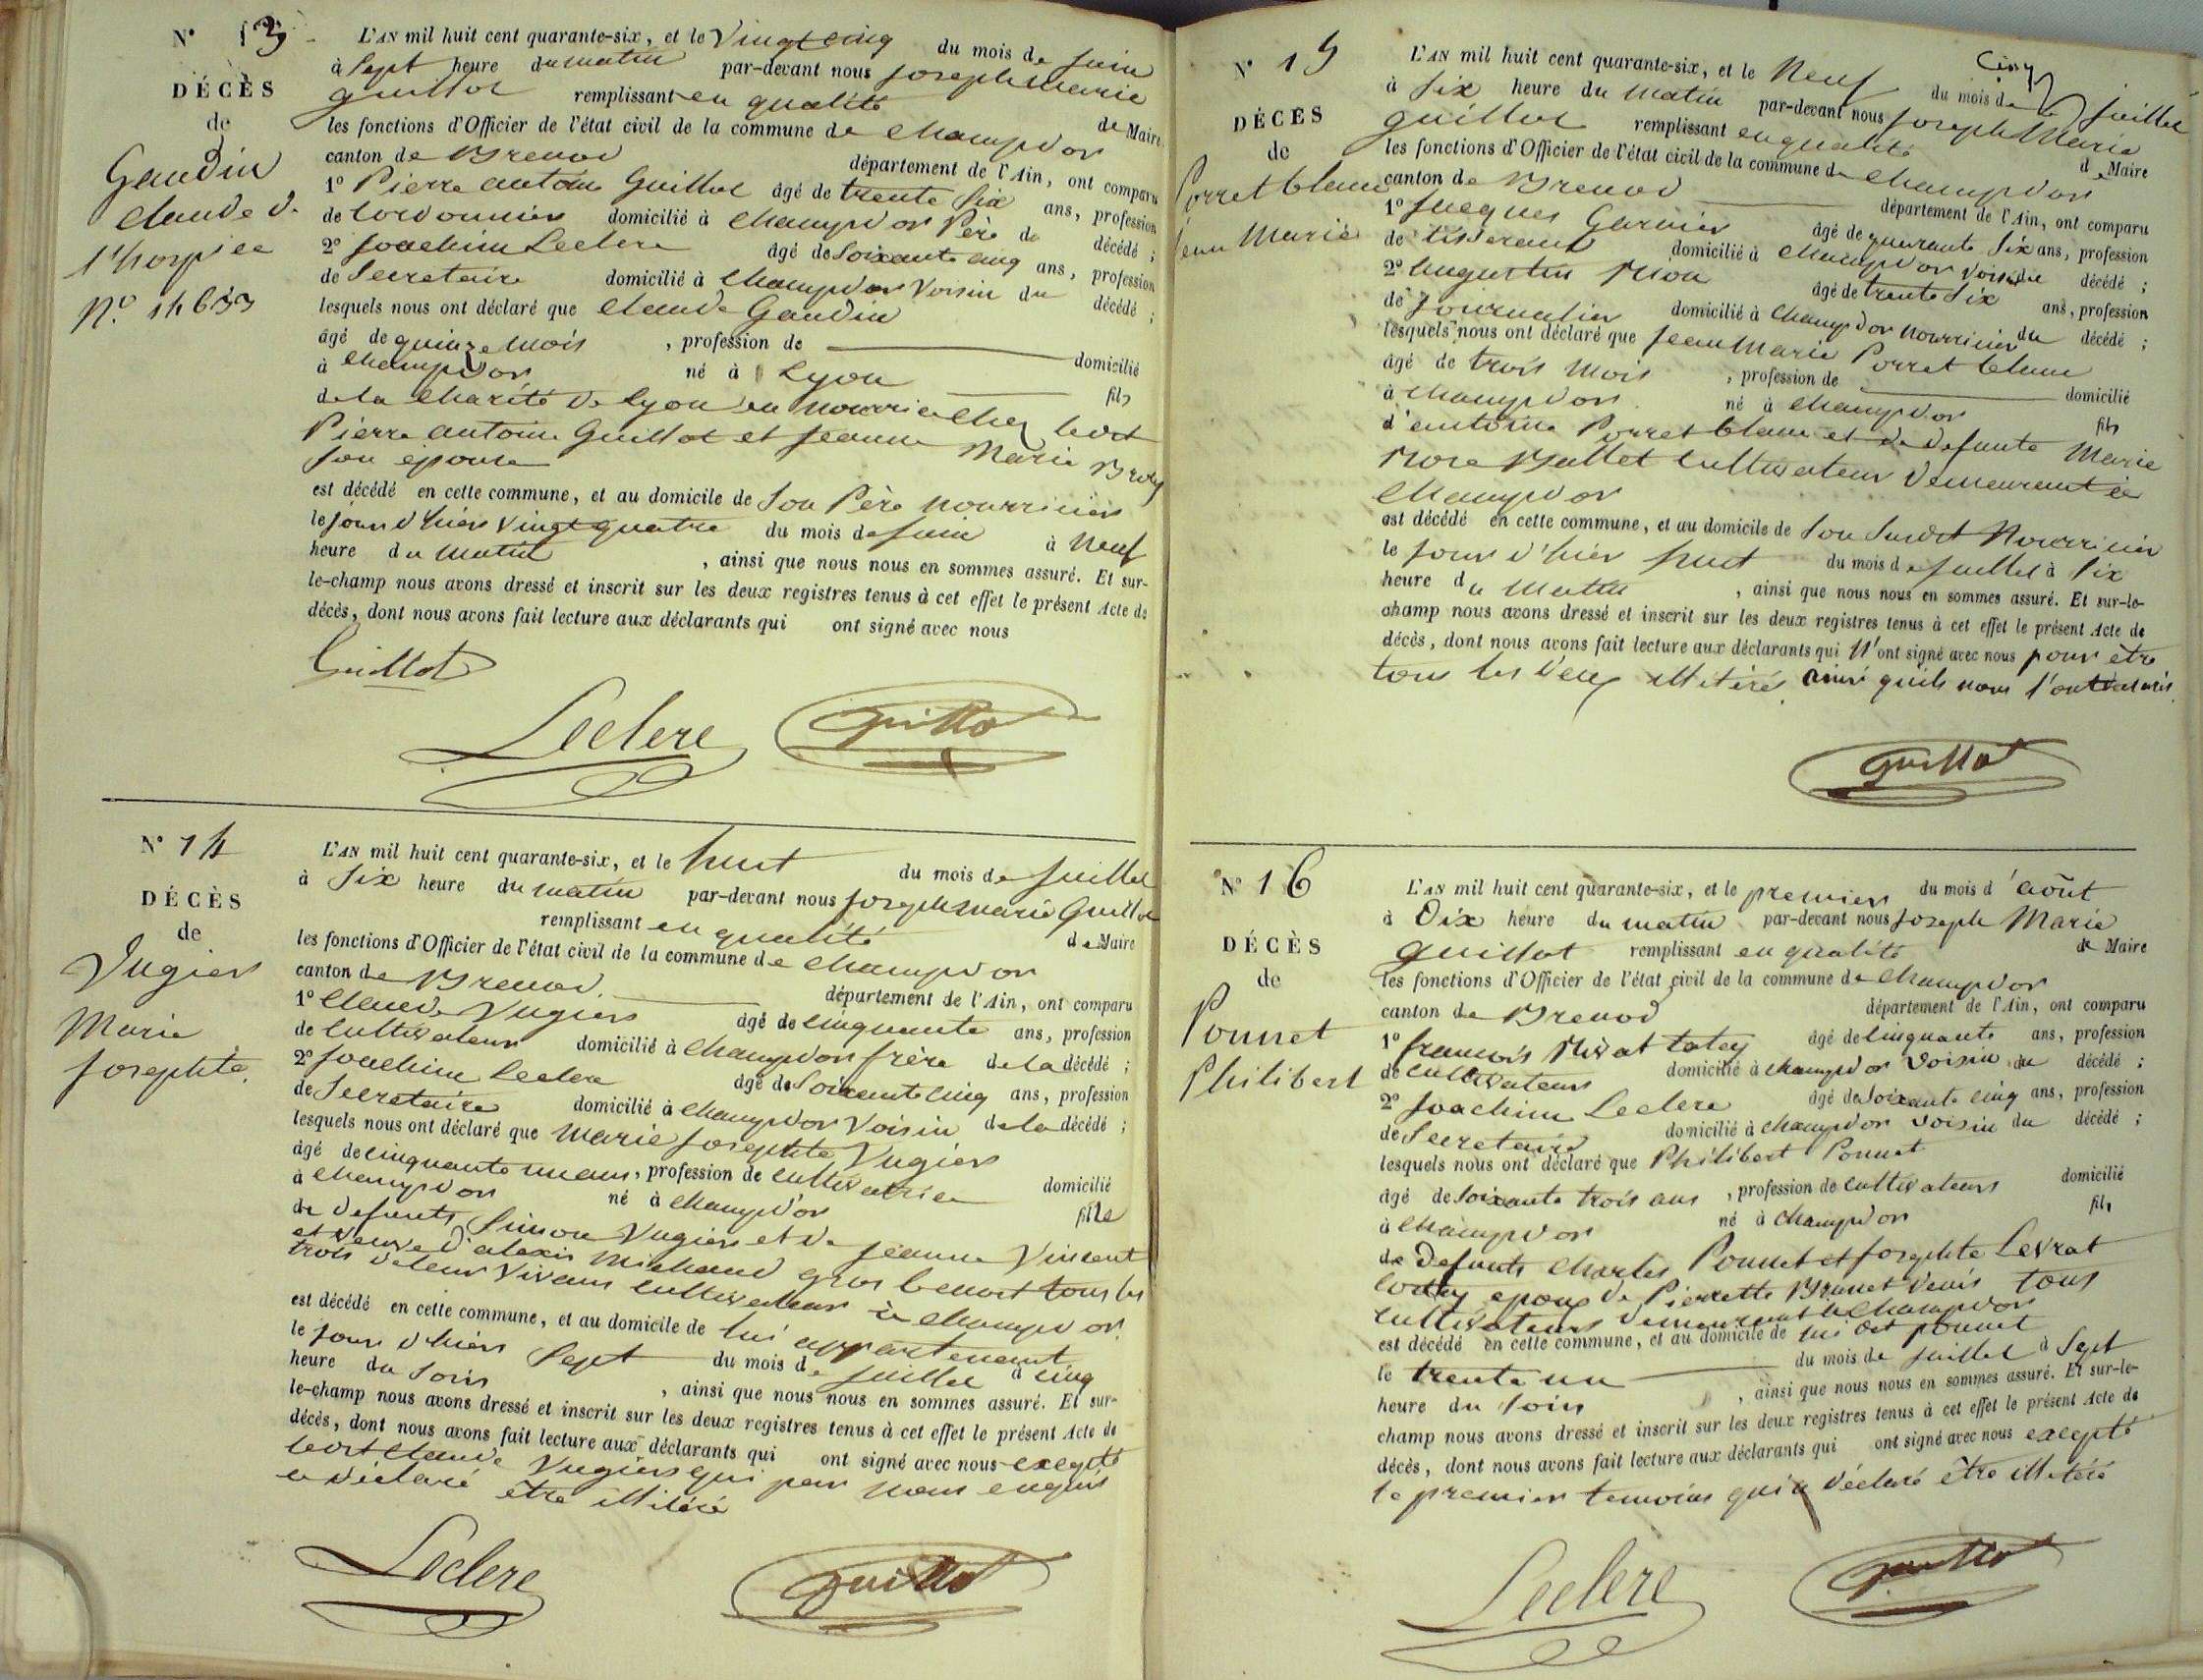 N° 13
DÉCÈS
de
Gaudin
Claude de
l'hospice
N°
L'AN mil huit cent quarante-six, et le Vingt cinq du mois de juin
à Sept heure du matin par-devant nous joseph Marie
guillot remplissant en qualité de Maire
les fonctions d'Officier de l'état civil de la commune de Champdor
canton de Brenod département de l'Ain, ont comparu
1° Pierre antoine Guillot âgé de trente Six ans, profession
de Cordonnier domicilié à Champdor Père du décédé ;
2° Joachim Leclere âgé de Soixante cinq ans, profession
de Secretaire domicilié à Champdor Voisin du décédé ;
lesquels nous ont déclaré que Claude Gaudin
âgé de quinze mois , profession de domicilié
à Champdor né à Lyon fils
de la Charité de Lyon en nourrice Chez ledt
Pierre antoine Guillot et jeanne Marie Broy
son epouse
est décédé en cette commune, et au domicile de Son Père nourricier
le jour d'hier Vingt quatre du mois de juin à Neuf
heure du matin , ainsi que nous nous en sommes assuré. Et sur-
le-champ nous avons dressé et inscrit sur les deux registres tenus à cet effet le présent Acte de
décès, dont nous avons fait lecture aux déclarants qui ont signé avec nous
Guillot
Leclere Guillot
N° 14
DÉCÈS
de
Vugier
Marie
josephte
L'AN mil huit cent quarante-six, et le huit du mois de juillet
à Six heure du matin par-devant nous joseph marie Guillot
remplissant en qualité de Maire
les fonctions d'Officier de l'état civil de la commune de Champdor
canton de Brenod département de l'Ain, ont comparu
1° Claude Vugier âgé de cinquante ans, profession
de Cultivateur domicilié à Champdor frère de la décédé ;
2° Joachim Leclere âgé de Soixante cinq ans, profession
de Secretaire domicilié à Champdor Voisin de la décédé ;
lesquels nous ont déclaré que Marie josephte Vugier
âgé de cinquante un ans, profession de Cultivatrice domicilié
à Champdor né à Champdor fille
de defunts Simon Vugier et de jeanne Vincent
et veuve d'alexis Michaud gros benoit tous les
trois de leur Vivant Cultivateur à Champdor
est décédé en cette commune, et au domicile de lui appartenant
le jour d'hier Sept du mois de juillet à cinq
heure du Soir , ainsi que nous nous en sommes assuré. Et sur-
le-champ nous avons dressé et inscrit sur les deux registres tenus à cet effet le présent Acte de
décès, dont nous avons fait lecture aux déclarants qui ont signé avec nous excepté
ledt Claude Vugier qui par nous enquis
a déclaré être illitéré
Leclere Guillot
N° 15
DÉCÈS
de
Porret blanc
jean Marie
L'AN mil huit cent quarante-six, et le Neuf du mois de juillet
à Six heure du matin par-devant nous joseph Marie
guillot remplissant en qualité de Maire
les fonctions d'Officier de l'état civil de la commune de Champdor
canton de Brenod département de l'Ain, ont comparu
1° Jacques Garnier âgé de quarante Six ans, profession
de tisserand domicilié à Champdor Voisin du décédé ;
2° augustin Mon âgé de trente Six ans, profession
de Journalier domicilié à Champdor nourricier du décédé ;
lesquels nous ont déclaré que jean Marie Porret blanc
âgé de trois Mois , profession de domicilié
à Champdor né à Champdor fils
d'antoine Porret blanc et de defunte Marie
Rose Ballet Cultivateur demeurant à
Champdor
est décédé en cette commune, et au domicile de Son Susdt Nourricier
le jour d'hier huit du mois de juillet à Six
heure du Matin , ainsi que nous nous en sommes assuré. Et sur-le-
champ nous avons dressé et inscrit sur les deux registres tenus à cet effet le présent Acte de
décès, dont nous avons fait lecture aux déclarants qui N'ont signé avec nous pour être
tous les deux illitéré ainsi quils nous l'ont déclaré
Guillot
N° 16
DÉCÈS
de
Ponnet
Philibert
L'AN mil huit cent quarante-six, et le premier du mois d'août
à Dix heure du matin par-devant nous joseph Marie
guillot remplissant en qualité de Maire
les fonctions d'Officier de l'état civil de la commune de Champdor
canton de Brenod département de l'Ain, ont comparu
1° françois âgé de cinquante ans, profession
de Cultivateur domicilié à Champdor Voisin du décédé ;
2° Joachim Leclere âgé de soixante cinq ans, profession
de Secretaire domicilié à Champdor Voisin du décédé ;
lesquels nous ont déclaré que Philibert Ponnet
âgé de soixante trois ans , profession de Cultivateur domicilié
à Champdor né à Champdor fils
de Defunts Charles Ponnet et josephte Levrat
epoux de Pierrette Brunet denis tous
Cultivateurs demeurant à Champdor
est décédé en cette commune, et au domicile de lui dit ponnet
le trente un du mois de juillet à Sept
heure du Soir , ainsi que nous nous en sommes assuré. Et sur-le-
champ nous avons dressé et inscrit sur les deux registres tenus à cet effet le présent Acte de
décès, dont nous avons fait lecture aux déclarants qui ont signé avec nous excepté
le premier temoins qui a déclaré être illitéré
Leclere Guillot